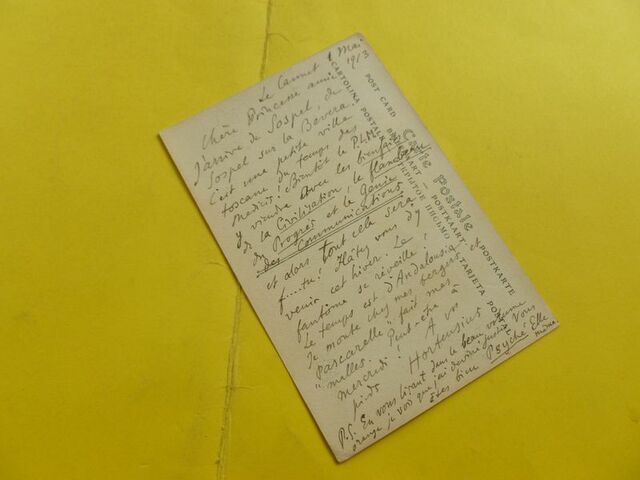 Le Cannet 1 Mai
1913
Chère Princesse amie
J'arrive de Sospel, de
Sospel sur la Bevera.
C'est une petite ville
toscane du temps des
Medicis! Bientôt le P.L.M.
y viendra avec les bienfaits
de la Civilisation, le flambeau
du Progrès et le Génie
des Communications
et alors tout cela sera
f....tu! Hâtez vous d'y
venir cet hiver. Le
fantôme se réveille!
Le temps est d'Andalousie et
Je monte chez mes bergers.
"Pascarelle" fait mes
"malles. Peut-être à
mercredi! A vos
pieds Hortensius
P.S. En vous lisant dans le beau volume
orange je vois que j'ai deviné juste. Vous
êtes bien Psyché Elle
même.
Carte Postale
POST CARD
CARTOLINA POSTALE
POSTKAART
POSTKARTE
TARJETA POSTAL
ОТКРЫТОЕ ПИСЬМО